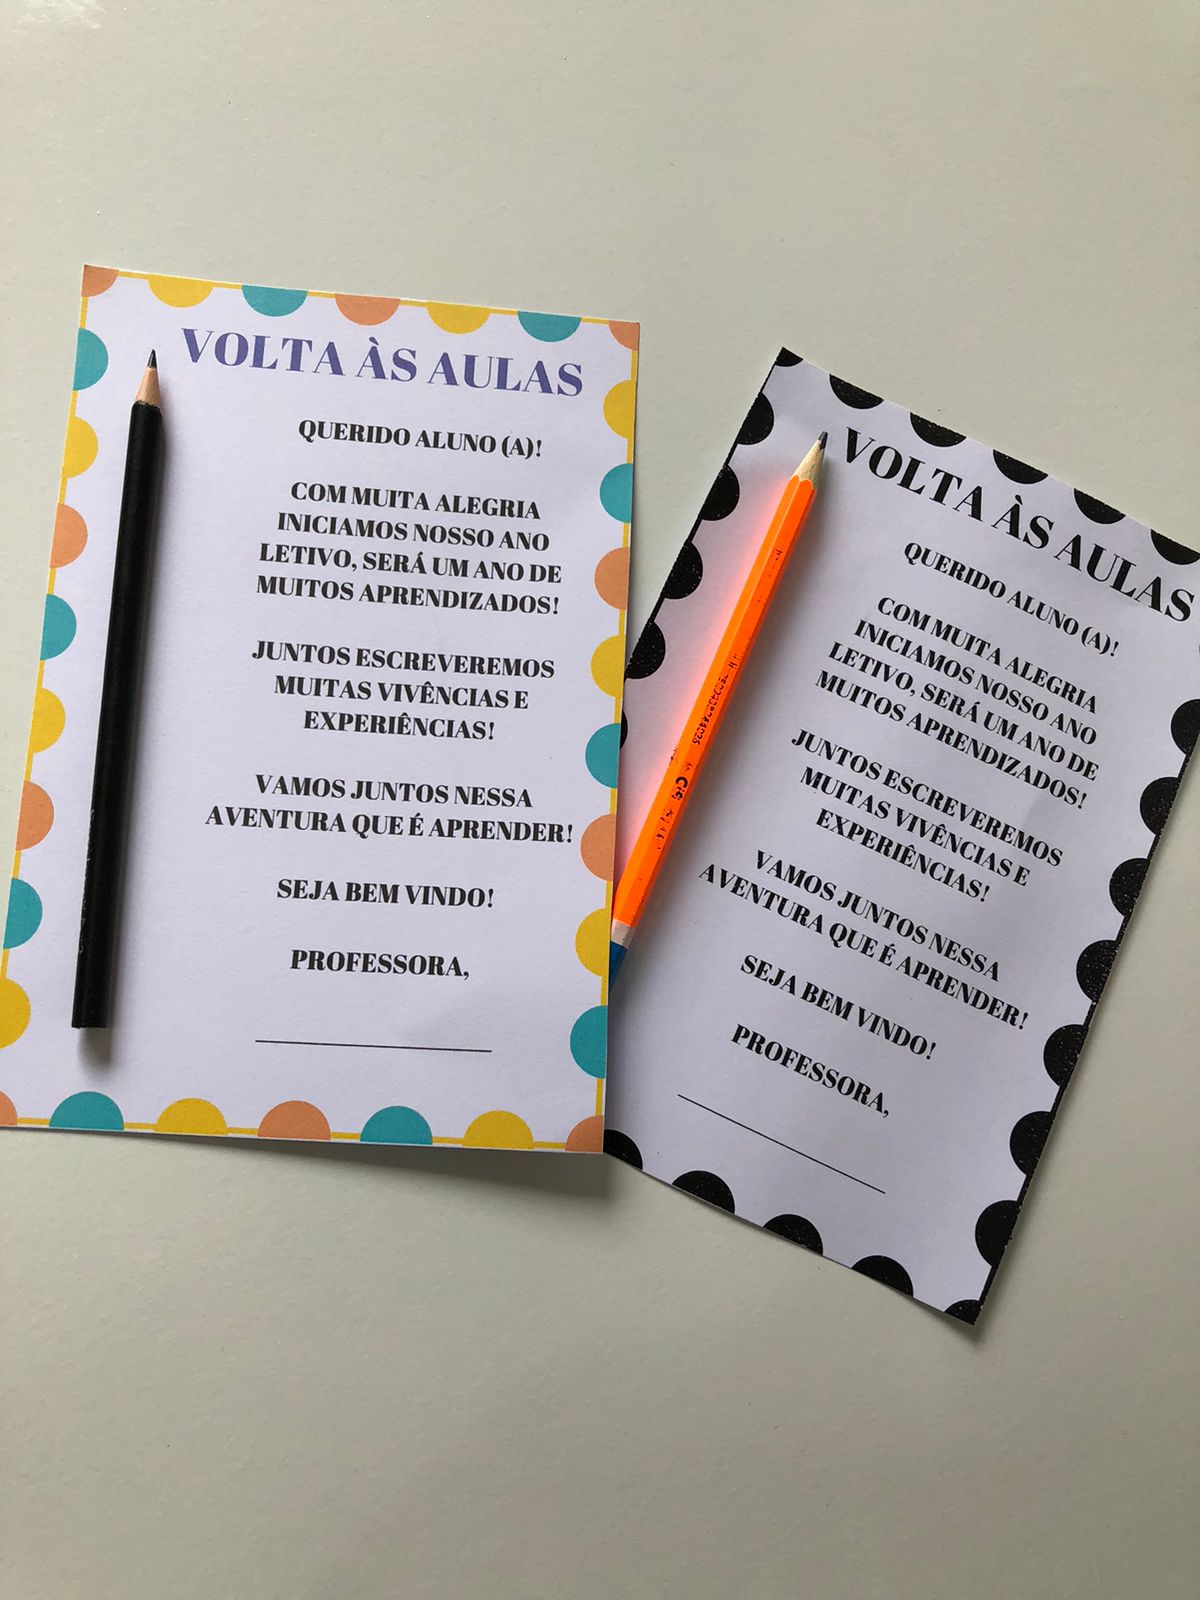 VOLTA ÀS AULAS
QUERIDO ALUNO (A)!
COM MUITA ALEGRIA
INICIAMOS NOSSO ANO
LETIVO, SERÁ UM ANO DE
MUITOS APRENDIZADOS!
JUNTOS ESCREVEREMOS
MUITAS VIVÊNCIAS E
EXPERIÊNCIAS!
VAMOS JUNTOS NESSA
AVENTURA QUE É APRENDER!
SEJA BEM VINDO!
PROFESSORA,
VOLTA ÀS AULAS
QUERIDO ALUNO (A)!
COM MUITA ALEGRIA
INICIAMOS NOSSO ANO
LETIVO, SERÁ UM ANO DE
MUITOS APRENDIZADOS!
JUNTOS ESCREVEREMOS
MUITAS VIVÊNCIAS E
EXPERIÊNCIAS!
VAMOS JUNTOS NESSA
AVENTURA QUE É APRENDER!
SEJA BEM VINDO!
PROFESSORA,
CiS